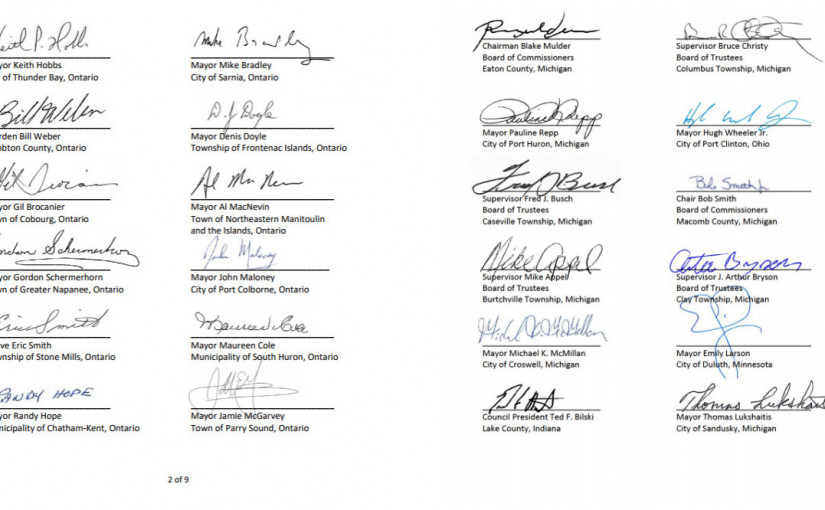 Keith P. Hobbs
yor Keith Hobbs
of Thunder Bay, Ontario
Bill Weber
rden Bill Weber
mbton County, Ontario
yor Gil Brocanier
wn of Cobourg, Ontario
Schermerhorn
yor Gordon Schermerhorn
wn of Greater Napanee, Ontario
Eric Smith
ve Eric Smith
wnship of Stone Mills, Ontario
RANDY HOPE
yor Randy Hope
nicipality of Chatham-Kent, Ontario
Mike Bradley
Mayor Mike Bradley
City of Sarnia, Ontario
D. J Doyle
Mayor Denis Doyle
Township of Frontenac Islands, Ontario
Al MacNevin
Mayor Al MacNevin
Town of Northeastern Manitoulin
and the Islands, Ontario
John Maloney
Mayor John Maloney
City of Port Colborne, Ontario
Maureen Cole
Mayor Maureen Cole
Municipality of South Huron, Ontario
Mayor Jamie McGarvey
Town of Parry Sound, Ontario
2 of 9
Chairman Blake Mulder
Board of Commissioners
Eaton County, Michigan
Pauline Repp
Mayor Pauline Repp
City of Port Huron, Michigan
Fred J Busch
Supervisor Fred J. Busch
Board of Trustees
Caseville Township, Michigan
Mike Appel
Supervisor Mike Appell
Board of Trustees
Burtchville Township, Michigan
Mayor Michael K. McMillan
City of Croswell, Michigan
Council President Ted F. Bilski
Lake County, Indiana
Supervisor Bruce Christy
Board of Trustees
Columbus Township, Michigan
Mayor Hugh Wheeler Jr.
City of Port Clinton, Ohio
Bob Smith
Chair Bob Smith
Board of Commissioners
Macomb County, Michigan
Artur Bryson
Supervisor J. Arthur Bryson
Board of Trustees
Clay Township, Michigan
Mayor Emily Larson
City of Duluth, Minnesota
Thomas Lukshaitis
Mayor Thomas Lukshaitis
City of Sandusky, Michigan